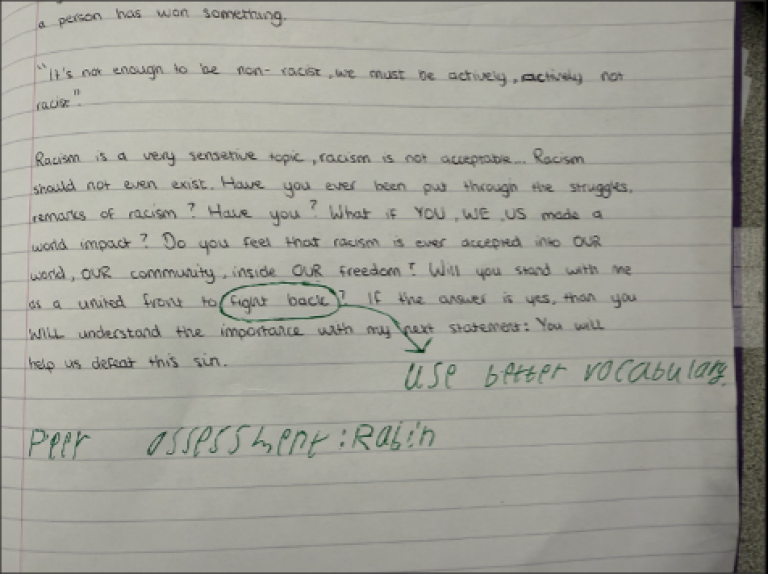 a person has won something.
"It's not enough to be non-racist, we must be actively, actively not
racist"
Racism is a very sensetive topic, racism is not acceptable... Racism
should not even exist. Have you ever been put through the struggles,
remarks of racism? Have you? What if YOU, WE, US made a
world impact? Do you feel that racism is ever accepted into OUR
world, OUR community, inside OUR freedom? Will you stand with me
as a united front to fight back? If the answer is yes, than you
will understand the importance with my next statement: You will
help us defeat this sin.
use better vocabulary
Peer assessment: Rabin